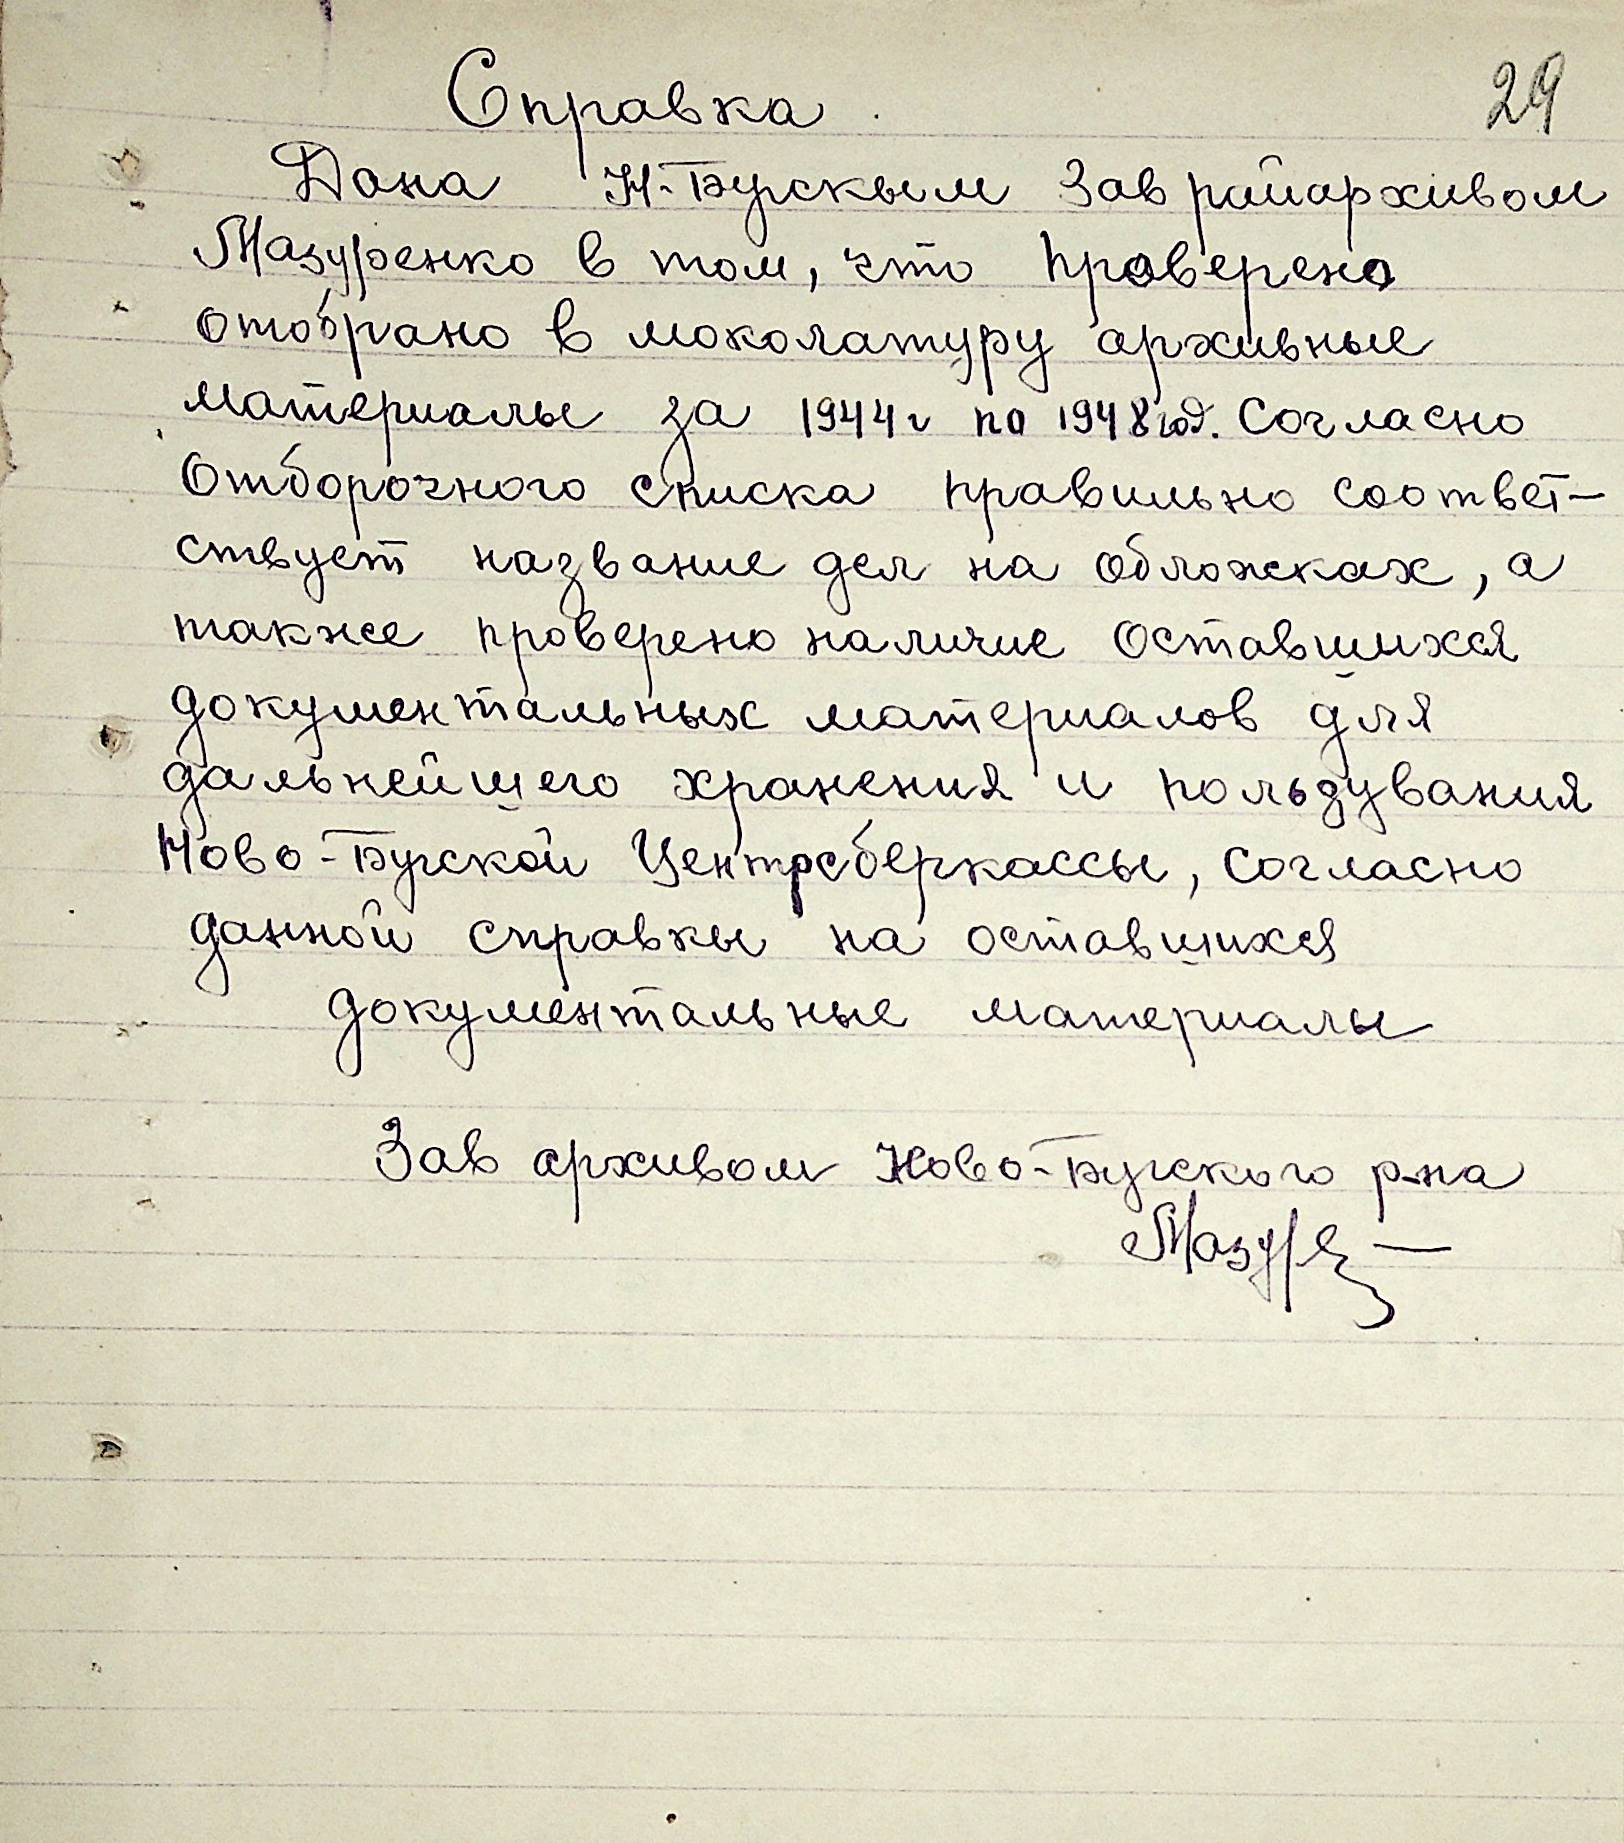 29
Справка
Дана Н-Бугскым Зав райархивом
Мазуренко в том, что проверено
отобрано в моколатуру архивные
материалы за 1944г по 1948 год. Согласно
Отборочного списка правильно соответ-
ствует название дел на обложках, а
также проверено наличие оставшихся
документальных материалов для
дальнейшего хранения и пользувания
Ново-Бугской Центросберкассы, согласно
данной справкы на оставшихся
документальные материалы
Зав архивом Ново-Бугского р-на